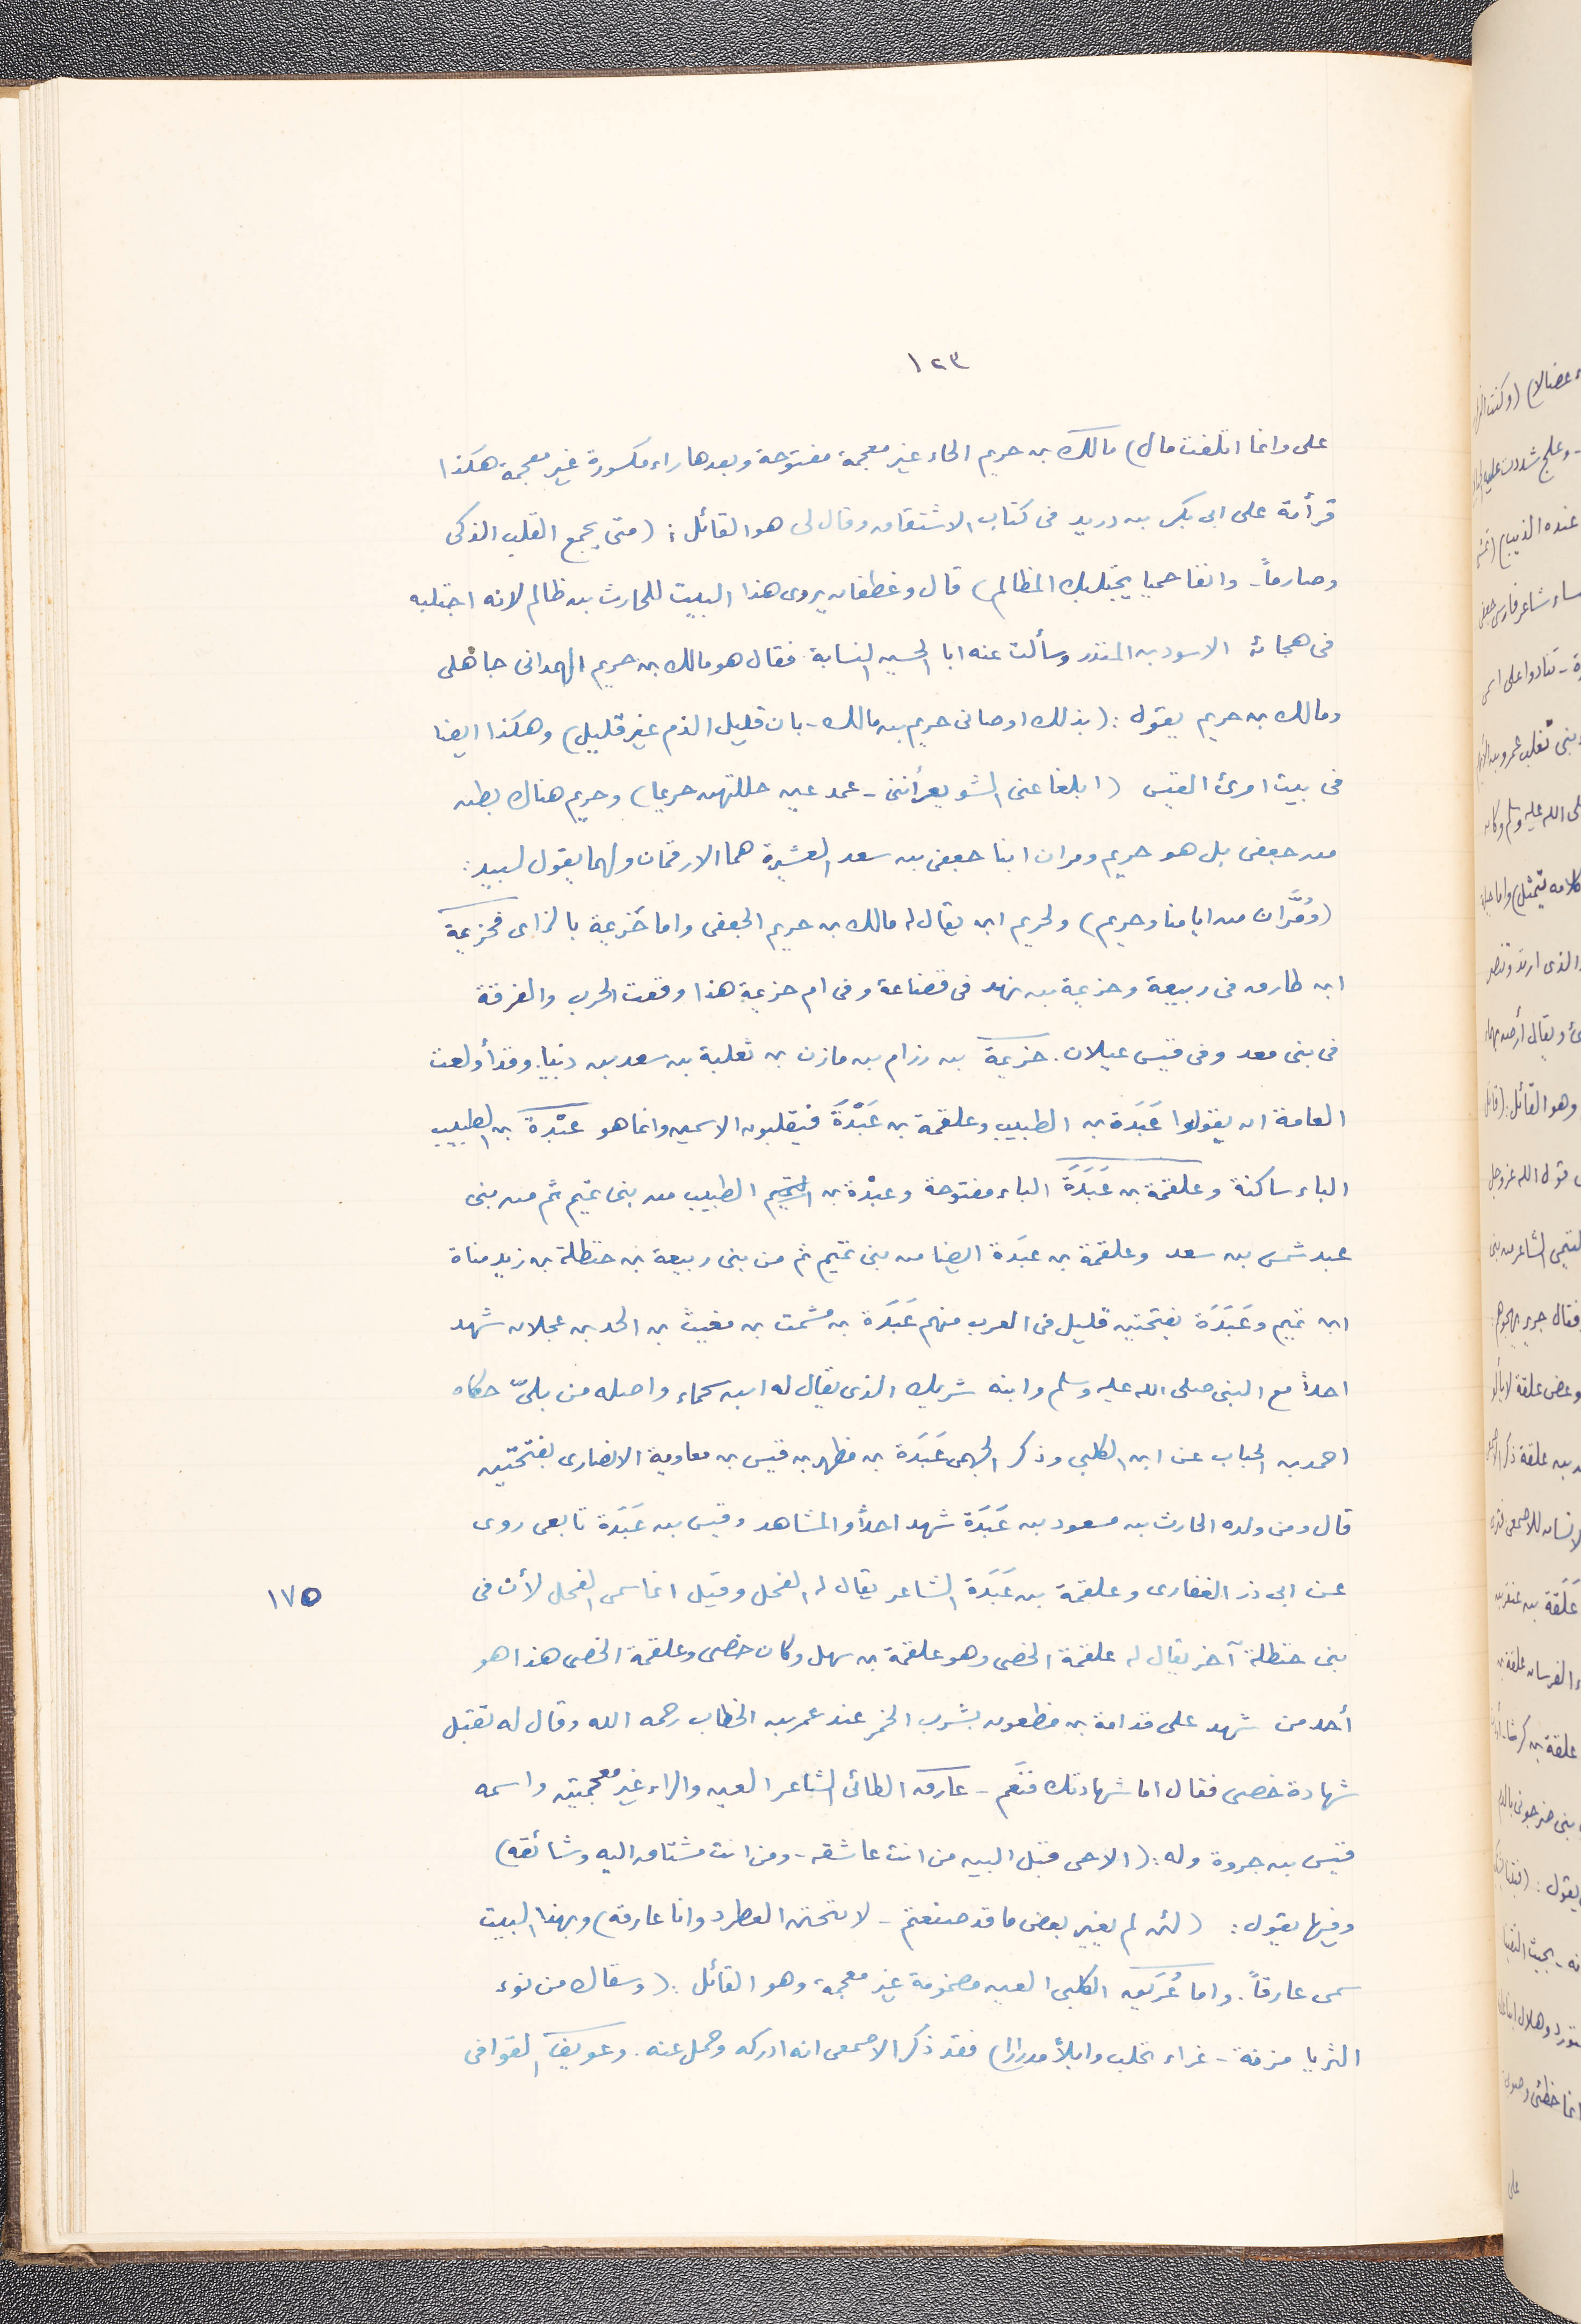 ١٢٣
على وانما اتلفت مال) مالك بن حريم الحاء غير معجمة مفتوحة وبعدها راء مكسورة غير معجمة هكذا
قرأته على ابى بكر بن دريد فى كتاب الاشتقاق وقال لى هو القائل: (متى يجمع القلب الذكى
وصارماً - وانفا حميا يجتنبك المظالم) قال وغطفان يروى هذا البيت للحارث بن ظالم لانه اجتلبه
فى هجائه الاسود بن المنذر وسألت عنه ابا الحسين النسابة فقال هو مالك بن حريم الهمدانى جاهلى
ومالك بن حريم يقول: (بذلك اوصانى حريم بن مالك - بان قليل الذم غير قليل) وهكذا ايضا
فى بيت امرئ القيس (ابلغا عنى الشويعر أننى - عمد عين حللتهن حريما) وحريم هناك بطن
من جعفى بل هو حريم ومران ابنا جعفى بن سعد العشيرة هما الارقمان ولهما يقول لبيد:
(ومُرَّان من ايامنا وحريم) ولحريم ابن يقال له مالك بن حريم الجعفى واما خزيمة بالزاى فخزيمة
ابن طارق فى ربيعة وخزيمة بن نهد فى قضاعة وفى ام خزيمة هذا وقعت الحرب والفرقة
فى بنى معد وفى قيس عيلان. خزيمة بن رزام بن مازن بن ثعلبة بن سعد بن دنيا. وقد أولعت
العامة ان يقولوا عَبَدَة بن الطبيب وعلقمة بن عَبْدَةَ فيقلبون الاسمين وانما هو عَبْدة بن الطبيب
الباء ساكنة وعلقمة بن عَبَدَةَ الباء مفتوحة وعبْدة بن الطبيب من بنى تميم ثم من بنى
عبد شمس بن سعد وعلقمة بن عبَدة ايضا من بنى تميم ثم من بنى ربيعة بن حنظلة بن زيد مناة
ابن تميم وعَبَدَة بفتحتين قليل فى العرب منهم عَبَدَة بن مشمت بن مغيث بن الجد بن عجلان شهد
احداً مع النبى صلى الله عليه وسلم وابنه شريك الذى يقال له ابن سحماء واصله من بلىّ حكاه
احمد بن الحباب عن ابن الكلبى وذكر الجهمى عَبَدَة بن مظهر بن قيس بن معاوية الانصارى بفتحتين
قال ومن ولده الحارث بن مسعود بن عَبَدَة شهد احداً والمشاهد وقيس بن عَبَدَة تابعى روى
عن ابى ذر الغفارى وعلقمة بن عَبَدَة الشاعر يقال له الفحل وقيل انما سمى الفحل لأن فى
١٧٥
بنى حنظلة آخر يقال له علقمة الخصى وهو علقمة بن سهل وكان خصى وعلقمة الخصى هذا هو
أحد من شهد على قدامة بن مظعون بشرب الخمر عند عمر بن الخطاب رحمه الله وقال له تقبل
شهادة خصى فقال اما شهادتك فنَعَم - عارق الطائى الشاعر العين والراء غير معجمتين واسمه
قيس بن جروة وله: (الاحى قبل البين من انت عاشقه - ومن انت مشتاق اليه وشائقه)
وفيها يقول: (لئن لم يغير بعض ما قد صنعتم - لانتحين العظم ذو انا عارقه) وبهذا البيت
سمى عارقاً. واما عُرَيق الكلبى العين مضمومة غير معجمة وهو القائل: (وسقاك من نوء
الثريا مزنة - غراء تحلب وابلاً مدرارا) فقد ذكر الاصمعى انه ادركه وحمل عنه. وعويف القوافى